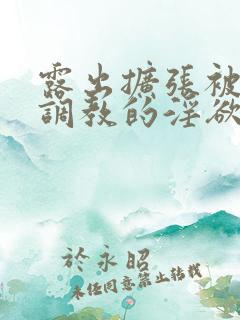 露出擴張被
調教的淫欲
於永昭
未經同意禁止轉載